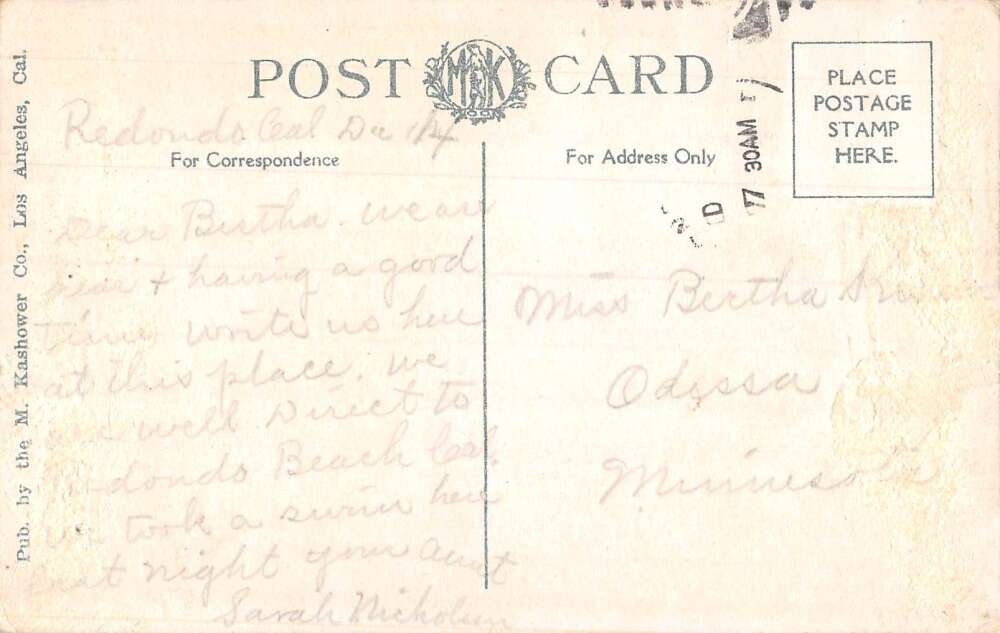 POST M K CARD
PLACE
POSTAGE
STAMP
HERE.
For Correspondence
For Address Only
30AM
Pub. by the M. Kashower Co., Los Angeles, Cal.
Redondo Cal Dec 14
Dear Bertha. we are
hear & having a good
time write us here
at this place. we
are well Direct to
Redondo Beach Cal.
we took a swim here
last night your Aunt
Sarah Nickolson
Miss Bertha
Odessa
Minnesota